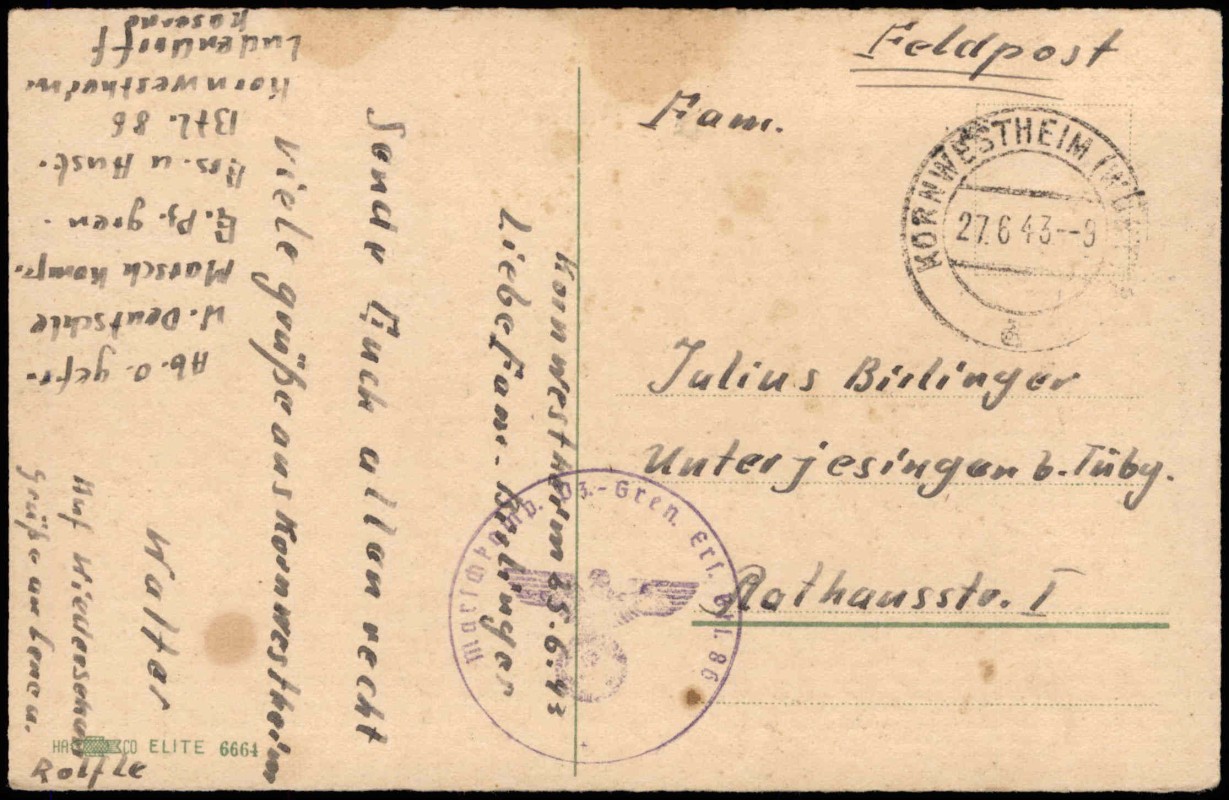 Feldpost
Fam.
KORNWESTHEIM (WÜ
27.6.43--9
a
Julius Birlinger
Unterjesingen b. Tübg.
Rathausstr. I
Marschkomp. Pz.-Gren. Ers. Btl. 86
Kornwestheim 25.6.43
Liebe Fam. Birlinger
Sende Euch allen recht
viele grüße aus Kornwestheim
Walter
Auf Wiedersehen
Grüße an
Ab. O. gefr.
W. Deutschle
Marsch Komp.
E. Pz. gren.
Ers. u Aust.
Btl. 86
Kornwestheim
Ludendorff
Kaserne
HA CO ELITE 6664